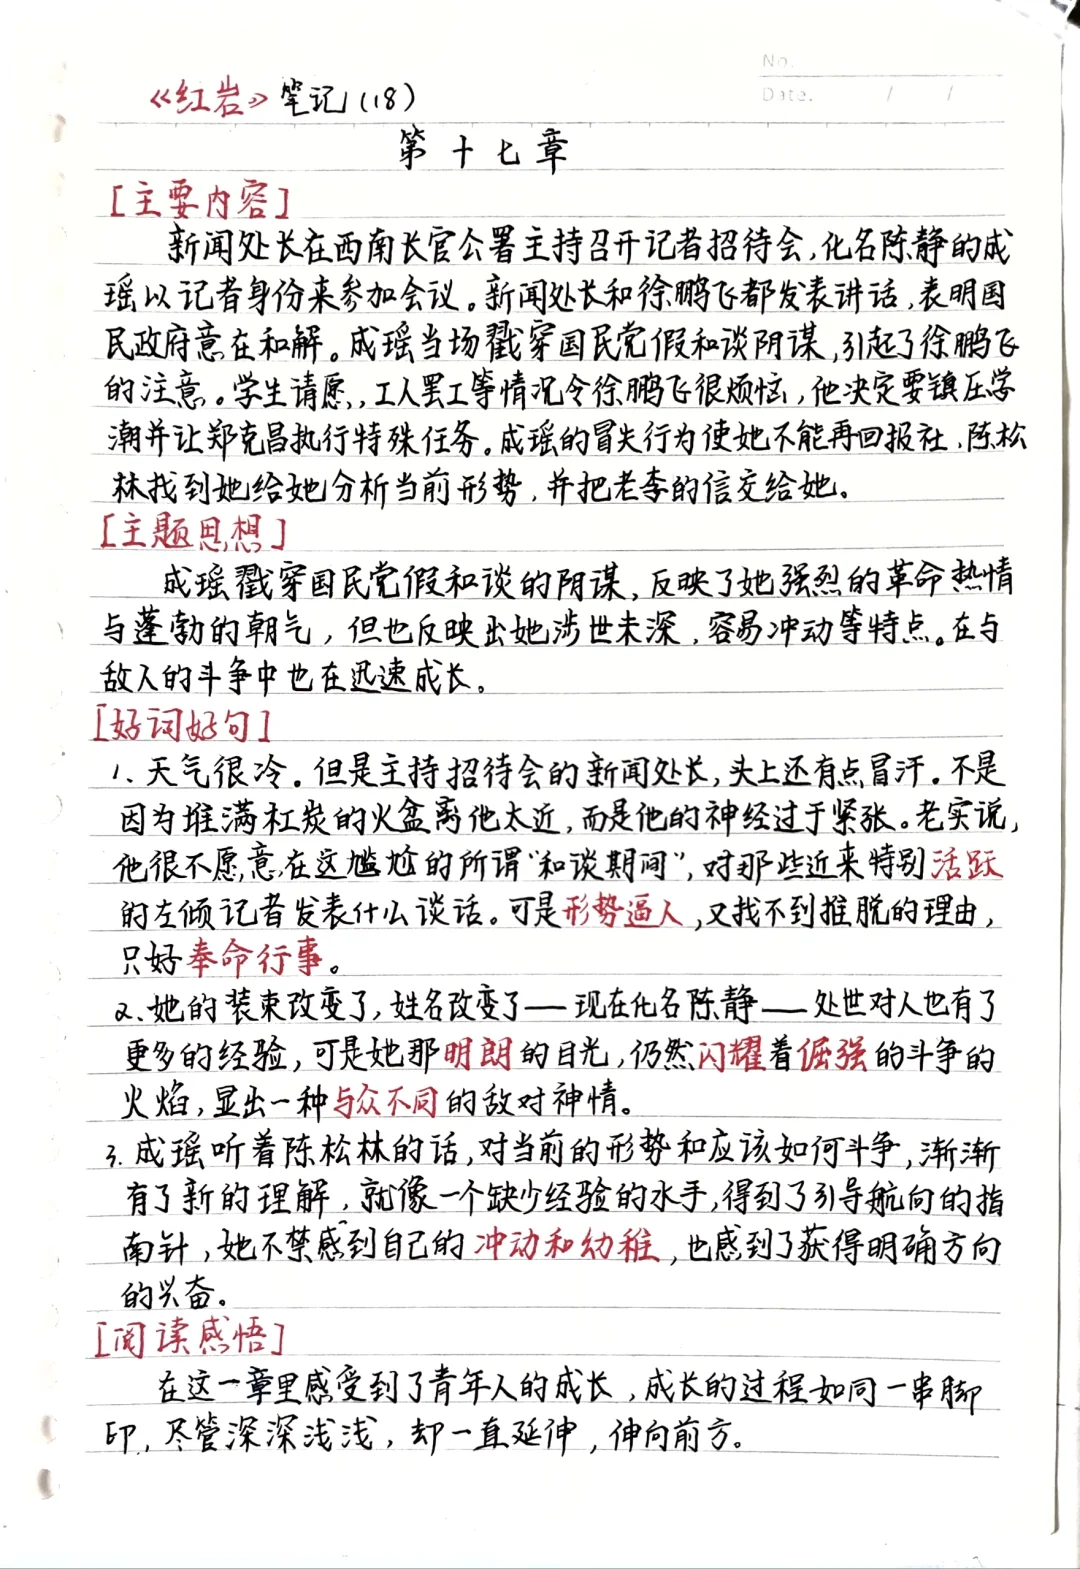 No.
Date. / /
《红岩》笔记(18)
第十七章
[主要内容]
新闻处长在西南长官公署主持召开记者招待会,化名陈静的成
瑶以记者身份来参加会议。新闻处长和徐鹏飞都发表讲话,表明国
民政府意在和解。成瑶当场戳穿国民党假和谈阴谋,引起了徐鹏飞
的注意。学生请愿,工人罢工等情况令徐鹏飞很烦恼,他决定要镇压学
潮并让郑克昌执行特殊任务。成瑶的冒失行为使她不能再回报社,陈松
林找到她给她分析当前形势,并把老李的信交给她。
[主题思想]
成瑶戳穿国民党假和谈的阴谋,反映了她强烈的革命热情
与蓬勃的朝气,但也反映出她涉世未深,容易冲动等特点。在与
敌人的斗争中也在迅速成长。
[好词好句]
1、天气很冷。但是主持招待会的新闻处长,头上还有点冒汗。不是
因为堆满杠炭的火盆离他太近,而是他的神经过于紧张。老实说,
他很不愿意在这尴尬的所谓“和谈期间”,对那些近来特别活跃
的左倾记者发表什么谈话。可是形势逼人,又找不到推脱的理由,
只好奉命行事。
2、她的装束改变了,姓名改变了——现在化名陈静——处世对人也有了
更多的经验,可是她那明朗的目光,仍然闪耀着倔强的斗争的
火焰,显出一种与众不同的敌对神情。
3. 成瑶听着陈松林的话,对当前的形势和应该如何斗争,渐渐
有了新的理解,就像一个缺少经验的水手,得到了引导航向的指
南针,她不禁感到自己的冲动和幼稚,也感到了获得明确方向
的兴奋。
[阅读感悟]
在这一章里感受到了青年人的成长,成长的过程如同一串脚
印,尽管深深浅浅,却一直延伸,伸向前方。